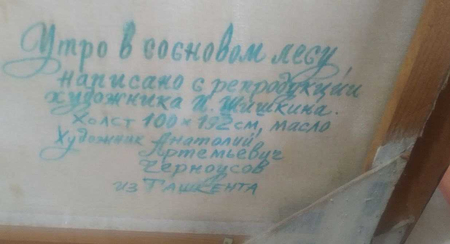 Утро в сосновом лесу,
написано с репродукции
художника И. Шишкина.
Холст 100 × 192 см, масло
Художник Анатолий
Артемьевич
Черноусов
из Ташкента